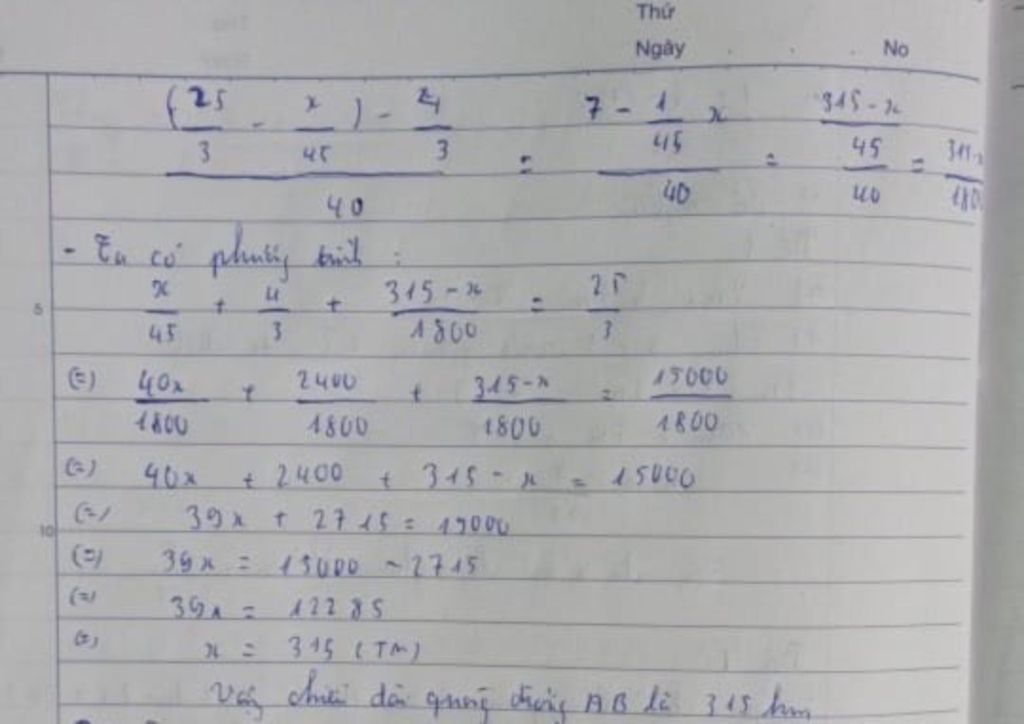 Thứ
Ngày . . . No
((25/3 - x/45) - 4/3)/40 = (7 - 1/45 x)/40 = ((315-x)/45)/40 = (315-x)/1800
- Ta có phương trình :
5 x/45 + 4/3 + (315-x)/1800 = 25/3
(=) 40x/1800 + 2400/1800 + (315-x)/1800 = 15000/1800
(=) 40x + 2400 + 315 - x = 15000
10 (=) 39x + 2715 = 15000
(=) 39x = 15000 - 2715
(=) 39x = 12285
(=) x = 315 (TM)
Vậy chiều dài quãng đường AB là 315 km